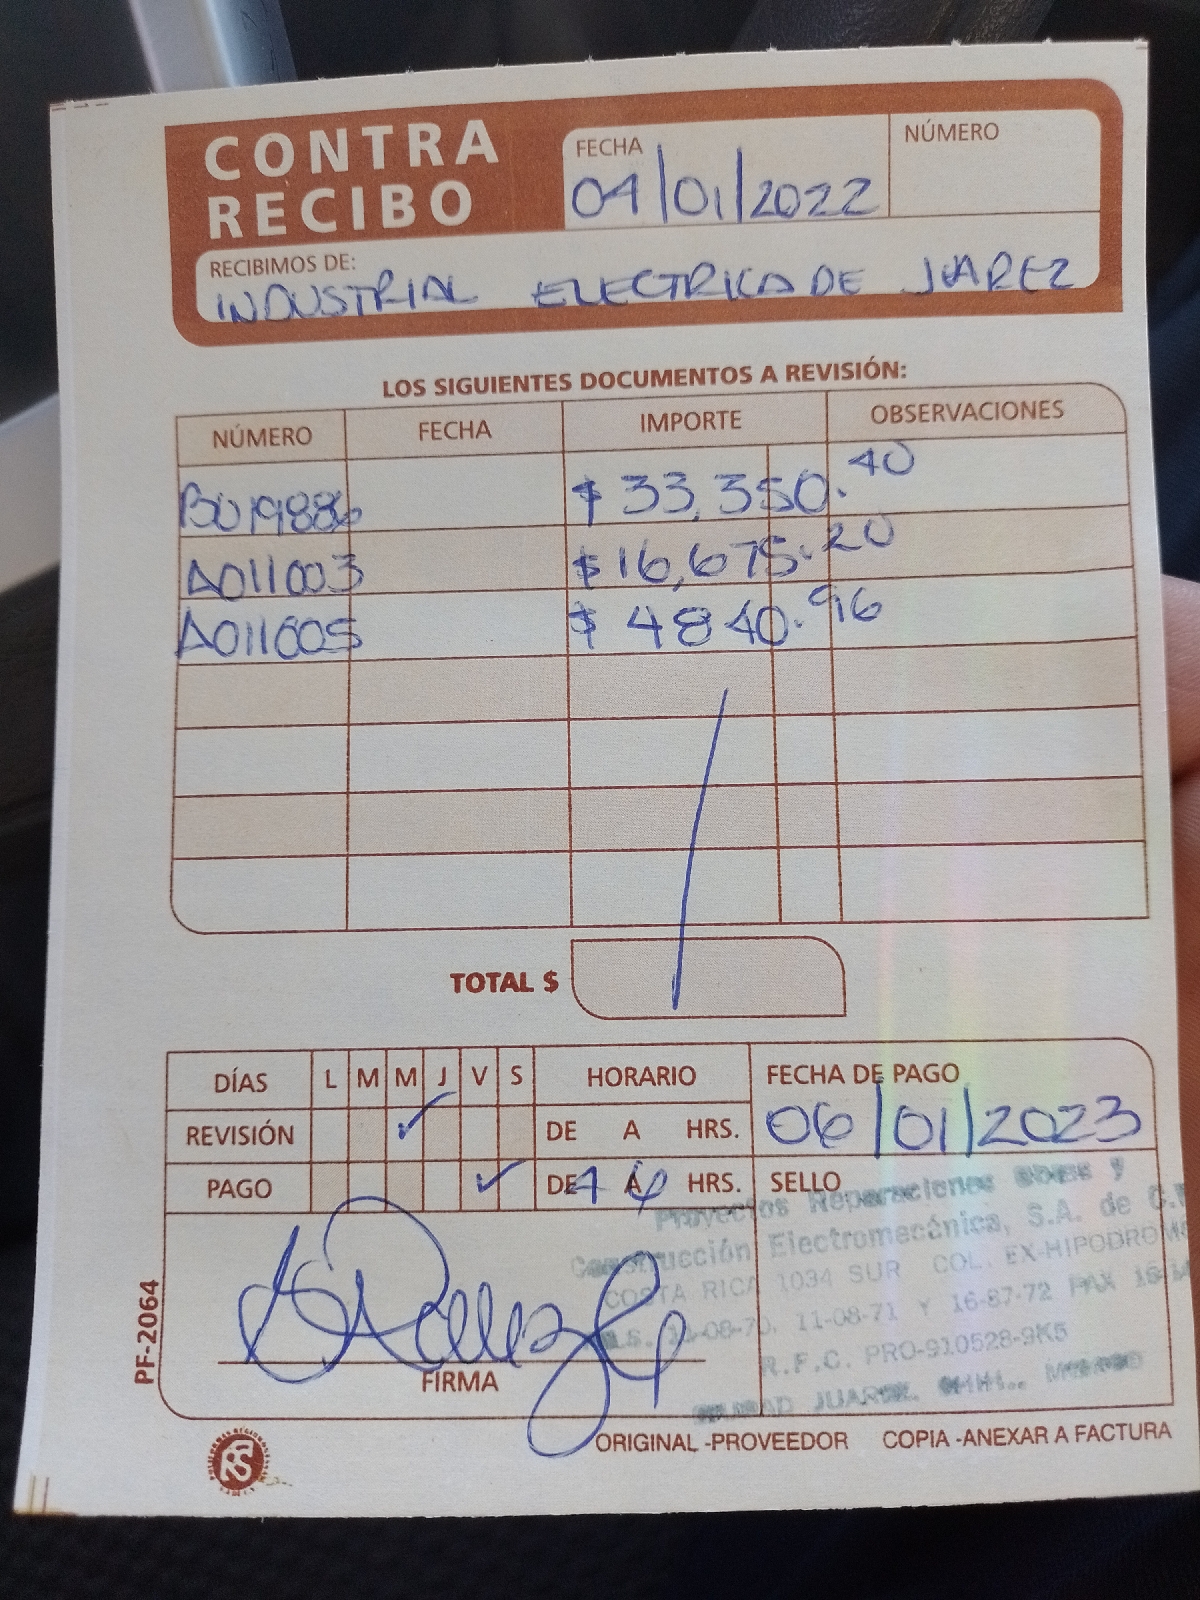 CONTRA RECIBO
FECHA
04/01/2022
NÚMERO
RECIBIMOS DE:
INDUSTRIAL ELECTRICA DE JUAREZ
LOS SIGUIENTES DOCUMENTOS A REVISIÓN:
NÚMERO FECHA IMPORTE OBSERVACIONES
B019886 $ 33,350.40
A011003 $16,675.20
A011005 $ 4840.96
TOTAL $
DÍAS L M M J V S HORARIO
FECHA DE PAGO
REVISIÓN ✓ DE A HRS.
06/01/2023
PAGO ✓ DE 4 A 6 HRS.
SELLO
Proyectos Reparaciones Obras y
Construcción Electromecánica, S.A. de C.V
COSTA RICA 1034 SUR COL. EX-HIPODROMO
11-08-71 Y 16-87-72 FAX
R.F.C. PRO-910528-9K5
JUAREZ, CHIH.,
FIRMA
PF-2064
ORIGINAL -PROVEEDOR COPIA -ANEXAR A FACTURA